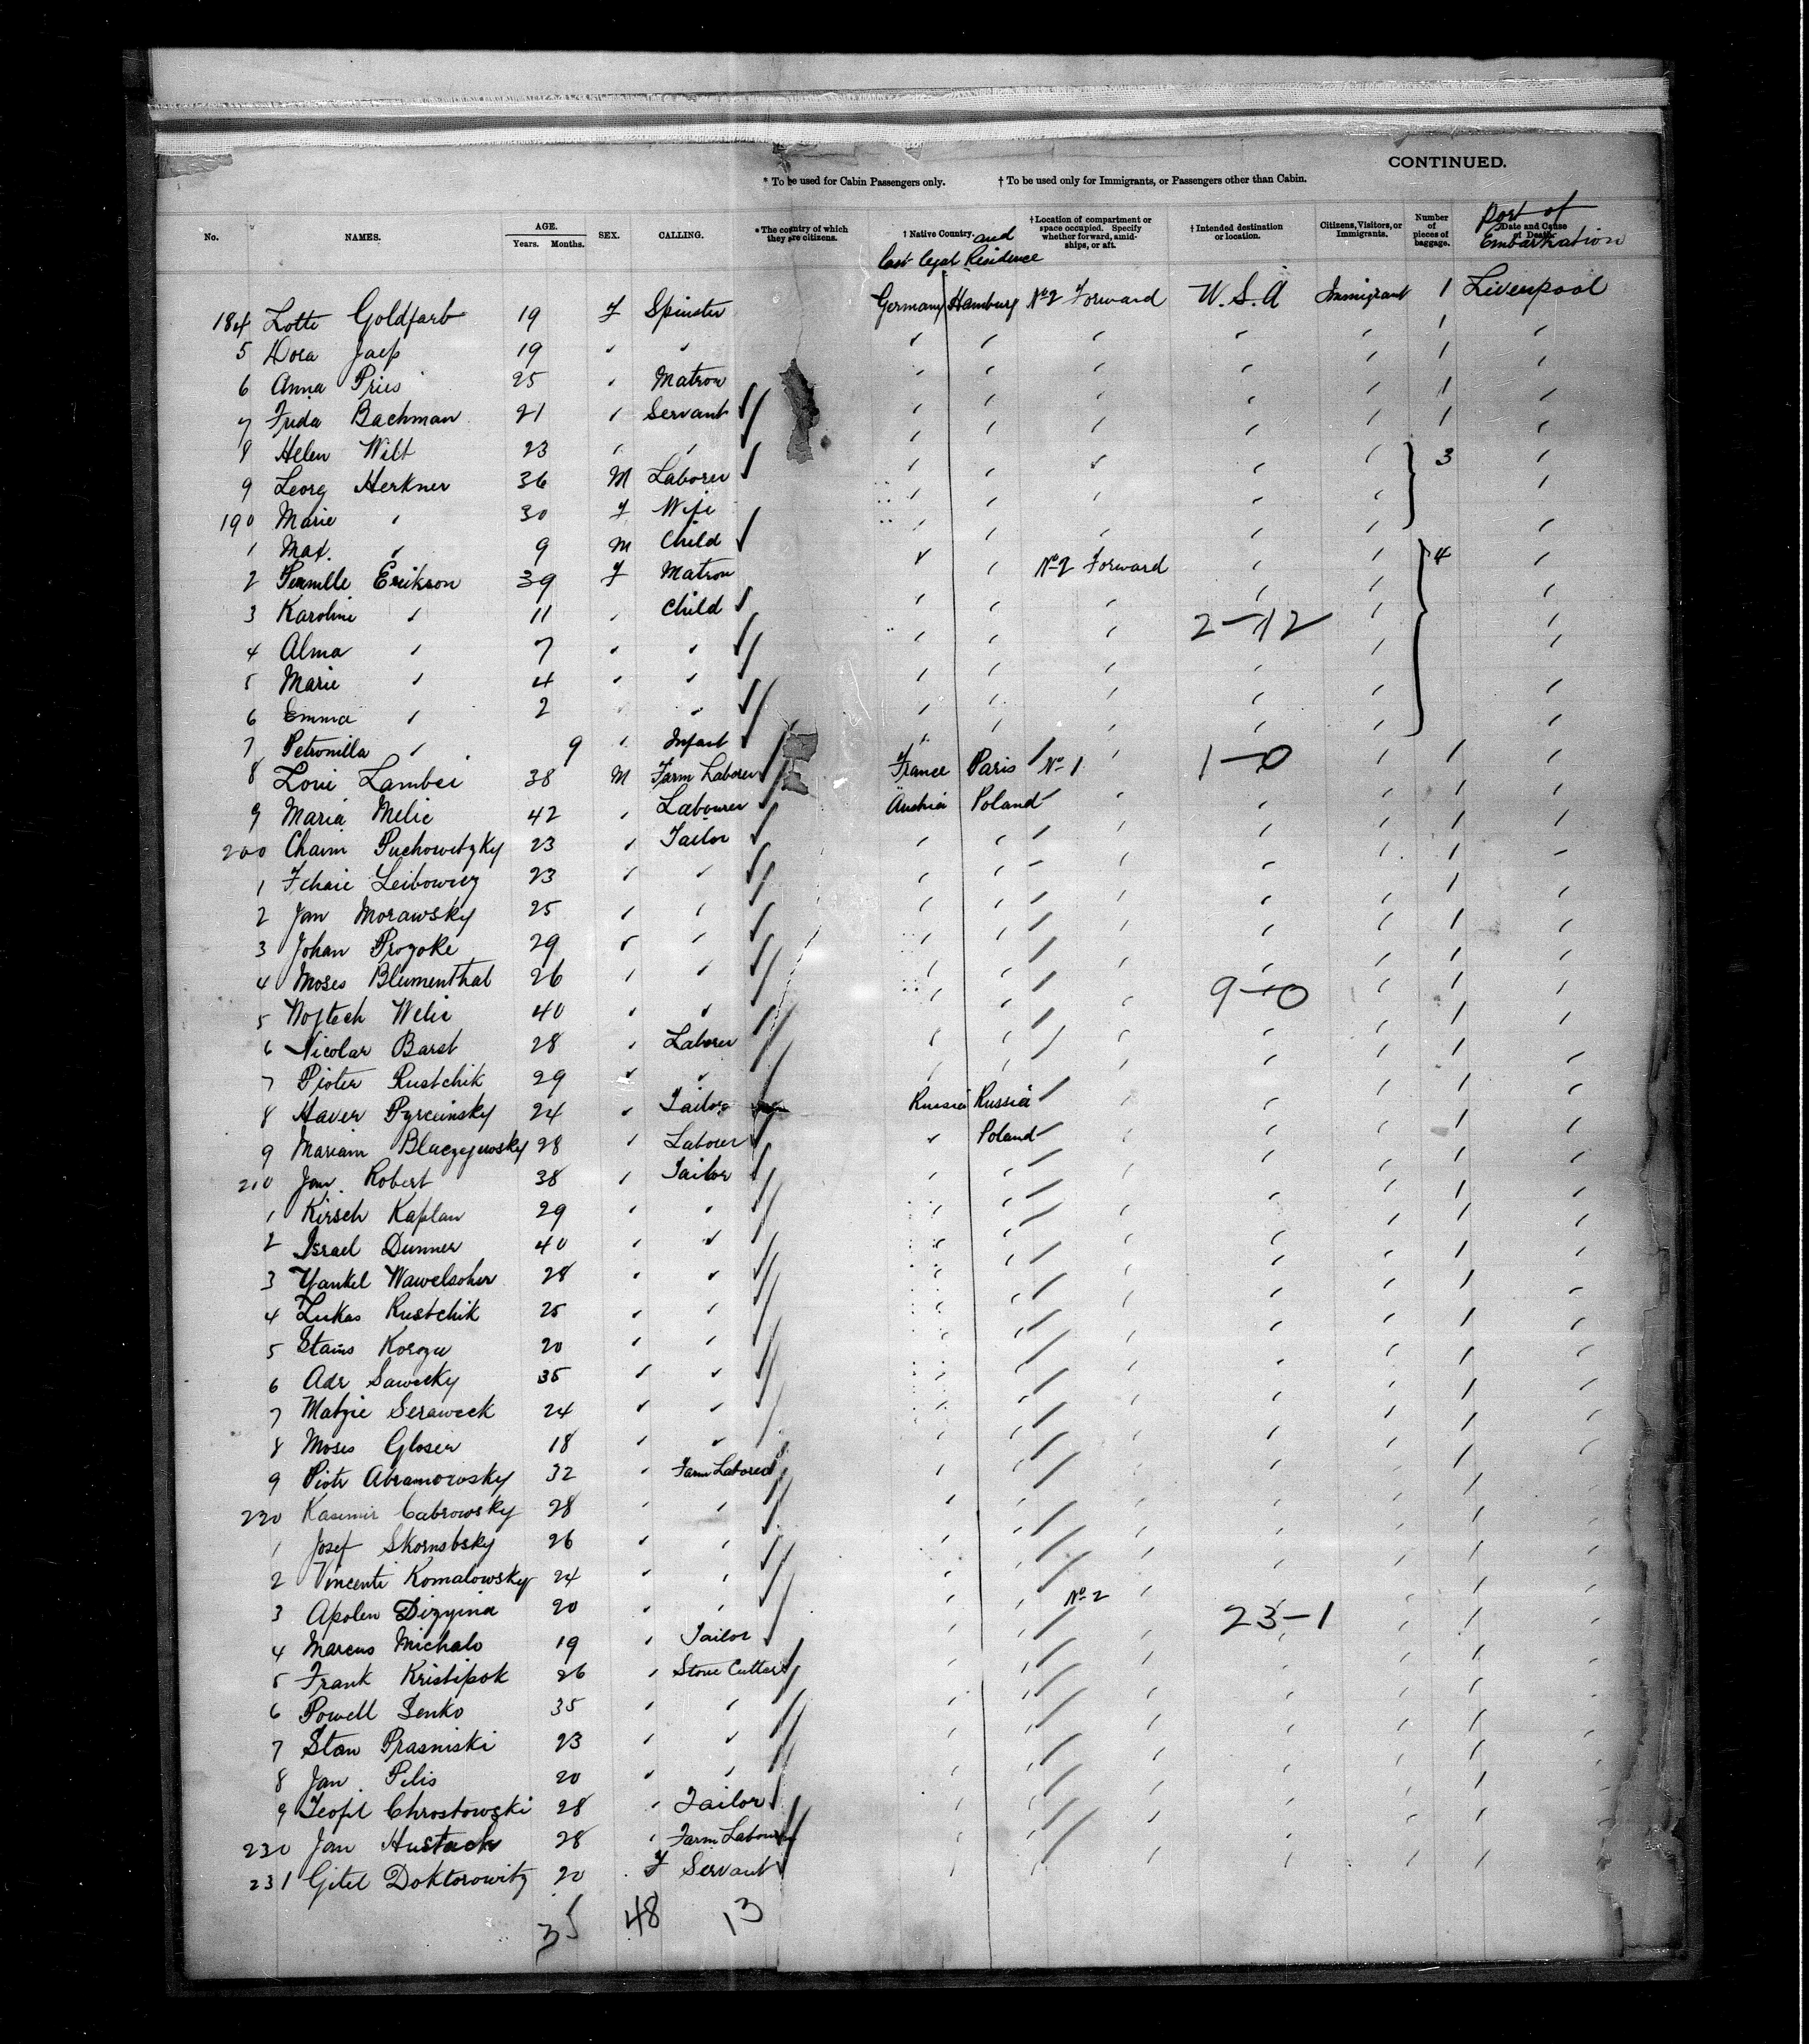 CONTINUED.
* To be used for Cabin Passengers only. † To be used only for Immigrants, or Passengers other than Cabin.
No. NAMES. AGE. Years. Months. SEX. CALLING. * The country of which they are citizens. † Native Country. and last legal Residence † Location of compartment or space occupied. Specify whether forward, amidships, or aft. † Intended destination or location. Citizens, Visitors, or Immigrants. Number of pieces of baggage. Date and Cause of Death. Port of Embarkation
184 Lotte Goldfarb 19 F Spinster Germany Hamburg No 2 Forward U.S.A Immigrant 1 Liverpool
5 Dora Jaep 19 " " " " " " " 1 "
6 Anna Pries 25 " Matron " " " " " 1 "
7 Frida Bachman 21 " Servant " " " " " 1 "
8 Helen Wilt 23 " " " " " " " 1 "
9 Georg Herkner 36 M Laborer " " " " " 3 "
190 Marie " 30 F Wife " " " " " "
1 Max " 9 M Child " " " " " "
2 Erikson 39 F Matron " " No 2 Forward " " 4 "
3 Karoline " 11 " Child " " " " " "
2-12
4 Alma " 7 " " " " " " " "
5 Marie " 4 " " " " " " " "
6 Emma " 2 " " " " " " " "
7 Petronilla " 9 " Infant " " " " " "
8 Loui Lambei 38 M Farm Laborer France Paris No 1 " 1-0 " 1 "
9 Maria Melic 42 " Labourer Austria Poland " " " 1 "
200 Chaim Puchowitzky 23 " Tailor " " " " " 1 "
1 Leibowicz 23 " " " " " " " 1 "
2 Jan Morawsky 25 " " " " " " " 1 "
3 Johan Prozoke 29 " " " " " " " 1 "
4 Moses Blumenthal 26 " " " " " " " 1 "
9-0
5 Wojtech Welic 40 " " " " " " " 1 "
6 Nicolar Barst 28 " Laborer " " " " " 1 "
7 Pioter Rustchik 29 " " " " " " " 1 "
8 Haver Pyrceinsky 24 " Tailor Russia Russia " " " 1 "
9 Mariam 28 " Labourer " Poland " " " 1 "
210 Jan Robert 38 " Tailor " " " " " 1 "
1 Kirsch Kaplan 29 " " " " " " " 1 "
2 Israel Dunner 40 " " " " " " " 1 "
3 Yankel Wawelsoher 28 " " " " " " " 1 "
4 Lukas Rustchik 25 " " " " " " " 1 "
5 Stains Korozu 20 " " " " " " " 1 "
6 Adr Sawecky 35 " " " " " " " 1 "
7 Matzie Seraweck 24 " " " " " " " 1 "
8 Moses Gloser 18 " " " " " " " 1 "
9 Piotr Abramorosky 32 " Farm Laborer " " " " " 1 "
220 Kasimir Cabrowsky 28 " " " " " " " 1 "
1 Josef Skornsbsky 26 " " " " " " " 1 "
2 Vincenti Komalowsky 24 " " " " " " " 1 "
3 Apolen Dizyina 20 " " " " No 2 " " " 1 "
23-1
4 Marcus Michalo 19 " Tailor " " " " " 1 "
5 Frank Kristipok 26 " Stone Cutter " " " " " 1 "
6 Powell Senko 35 " " " " " " " 1 "
7 Stan Prasniski 23 " " " " " " " 1 "
8 Jan Pelis 20 " " " " " " " 1 "
9 Teofil Chrostowski 28 " Tailor " " " " " 1 "
230 Jan Hustack 28 " Farm Labourer " " " " " 1 "
231 Gitel Doktorowitz 20 F Servant " " " " " 1 "
35 48 13